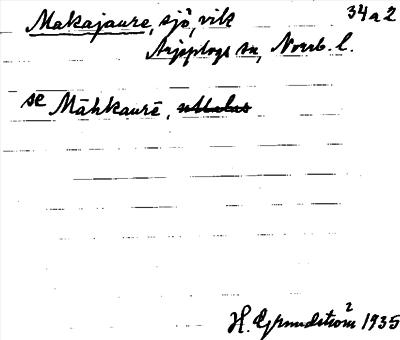 Makajaure, sjö, vik 34a2
Arjeplogs sn, Norrb. l.
se Māhkaurē, uttalas
H. Grundström 2 1935